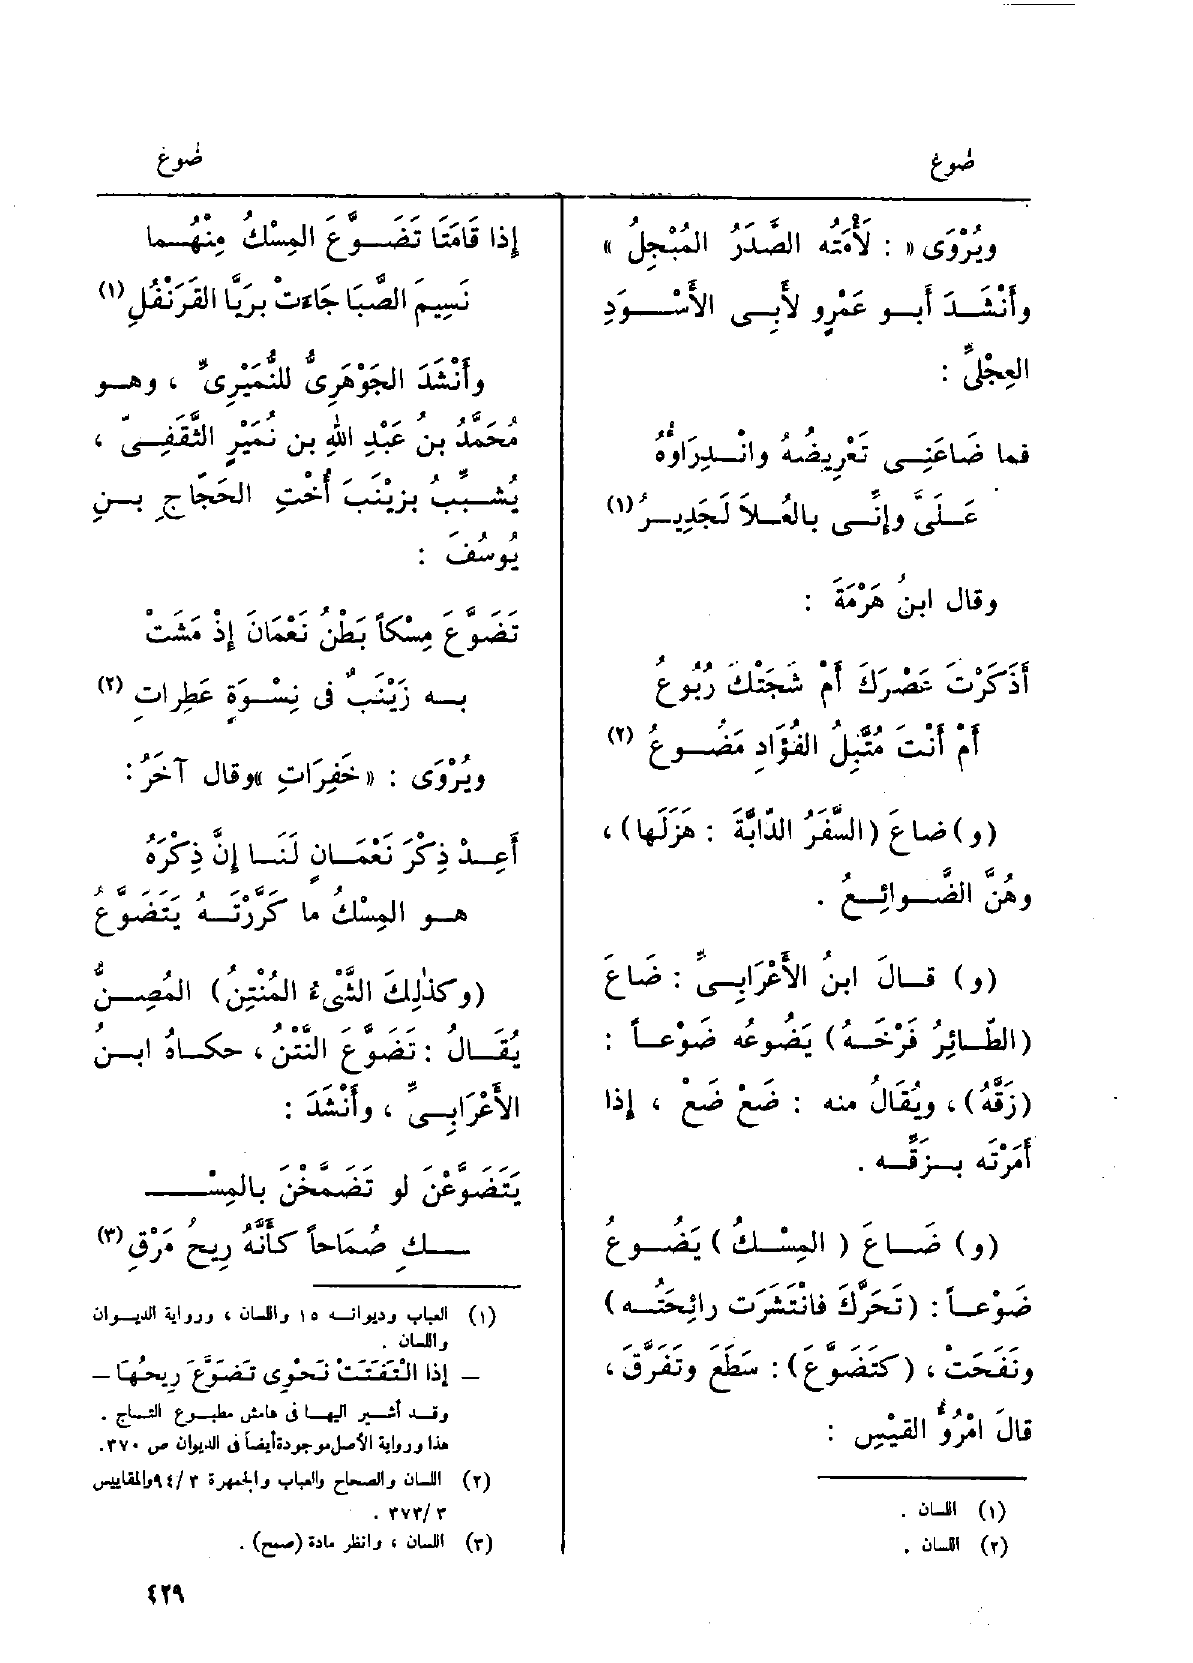 ضوع
ضوع
ويُرْوَى « : لأُمَتُه الصَّدَرُ المُبْجِلُ »
وأَنْشَدَ أَبو عَمْرٍو لأَبِى الأَسْوَدِ
العِجْلِىِّ :
فما ضَاعَنِى تَعْرِيضُهُ وانْدِرَاؤُهُ
عَلَىَّ وإِنِّى بالعُلاَ لَجَدِيرُ (١)
وقال ابنُ هَرْمَةَ :
أَذَكَرْتَ عَصْرَكَ أَمْ شَجَتْكَ رُبُوعُ
أَمْ أَنْتَ مُتَّبِلُ الفُؤَادِ مَضُوعُ (٢)
(و) ضاعَ (السَّفَرُ الدّابَّةَ : هَزَلَها) ،
وهُنَّ الضَّوائِعُ .
(و) قالَ ابنُ الأَعْرَابِىِّ : ضَاعَ
(الطّائِرُ فَرْخَهُ) يَضُوعُه ضَوْعاً :
(زَقَّهُ) ، ويُقَالُ منه : ضَعْ ضَعْ ، إِذا
أَمَرْتَه بِزَقِّه .
(و) ضَاعَ (المِسْكُ) يَضُوعُ
ضَوْعاً : (تَحَرَّكَ فانْتَشَرَت رائِحَتُه)
ونَفَحَتْ ، (كتَضَوَّعَ) : سَطَعَ وتَفَرَّقَ ،
قالَ امْرُؤُ القَيْسِ :
(١) اللسان .
(٢) اللسان .
إِذا قَامَتَا تَضَوَّعَ المِسْكُ مِنْهُما
نَسِيمَ الصَّبَا جَاءَتْ بِرَيَّا القَرَنْفُلِ (١)
وأَنْشَدَ الجَوْهَرِىُّ للنُّمَيْرِىِّ ، وهو
مُحَمَّدُ بنُ عَبْدِ اللهِ بن نُمَيْرٍ الثَّقَفِىّ ،
يُشَبِّبُ بزَيْنَبَ أُخْتِ الحَجّاجِ بنِ
يُوسُفَ :
تَضَوَّعَ مِسْكاً بَطْنُ نَعْمَانَ إِذْ مَشَتْ
به زَيْنَبٌ فى نِسْوَةٍ عَطِراتِ (٢)
ويُرْوَى : «خَفِرَاتِ» وقال آخَرُ :
أَعِدْ ذِكْرَ نَعْمَانٍ لَنَا إِنَّ ذِكْرَهُ
هو المِسْكُ ما كَرَّرْتَهُ يَتَضَوَّعُ
(وكذٰلِكَ الشَّىْءُ المُنْتِنُ) المُصِنُّ
يُقَالُ : تَضَوَّعَ النَّتْنُ ، حكاهُ ابنُ
الأَعْرَابِىِّ ، وأَنْشَدَ :
يَتَضَوَّعْنَ لو تَضَمَّخْنَ بالمِسْــ
ــكِ صُمَاحاً كأَنَّهُ رِيحُ مَرْقِ (٣)
(١) العباب وديوانه ١٥ واللسان ، ورواية الديوان
واللسان .
– إذا الْتَفَتَتْ نَحْوِى تَضَوَّعَ رِيحُهَا –
وقد أشير إليها فى هامش مطبوع التاج .
هذا ورواية الأصل موجودة أيضاً فى الديوان ص ٣٧٠.
(٢) اللسان والصحاح والعباب والجمهرة ٣/ ٩٤ والمقاييس
٣/ ٣٧٣ .
(٣) اللسان ، وانظر مادة (صمح) .
٤٢٩